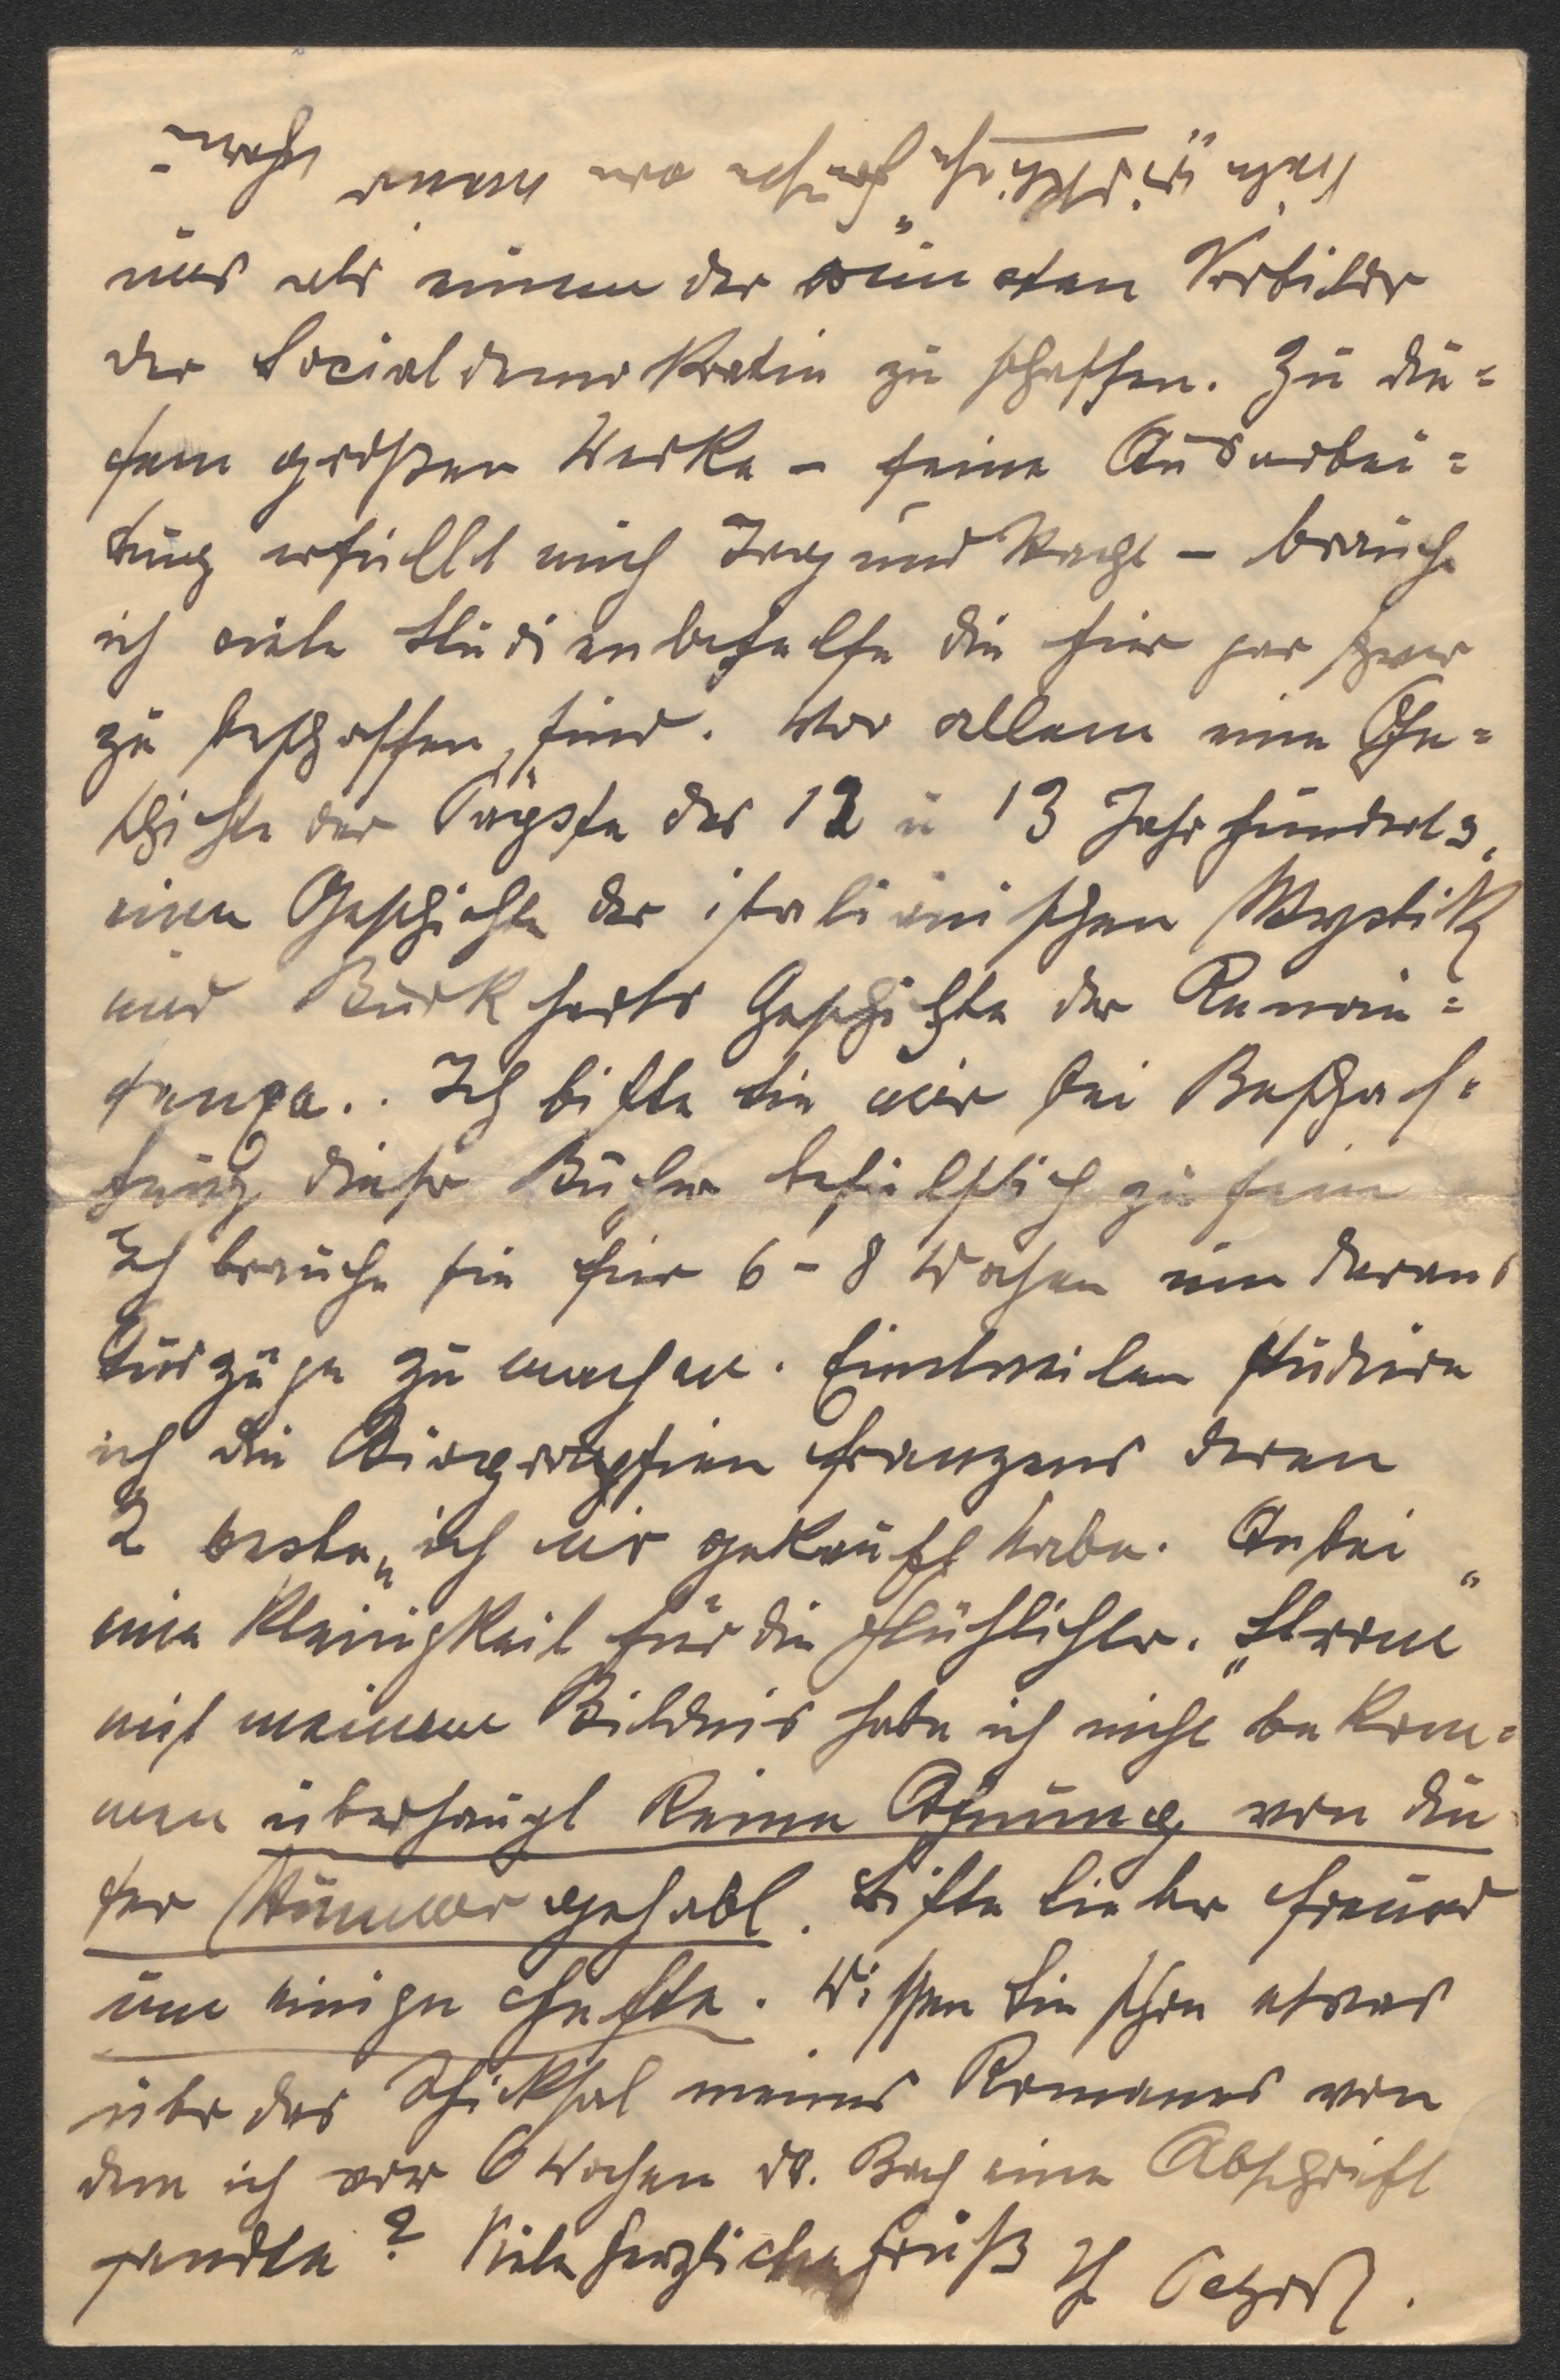 uns als einen der ersten Vorbilder
der Socialdemokratie zu schaffen. Zu die=
sem großen Werke – seine Ausarbei=
tung erfüllt mich Tag und Nacht – brauche
ich viele Studienbehelfe die hier gar schwer
zu beschaffen sind. Vor allem eine Ge=
schichte der Päpste des 12 u 13 Jahrhunderts,
eine Geschichte der italienischen Mystik
und Burkharts Geschichte der Renais=
sance.. Ich bitte Sie mir bei Beschaf=
fung dieser Bücher behülflich zu sein
Ich brauche sie für 6–8 Wochen um daraus
Auszüge zu machen. Einstweilen studiere
ich die Biographien Franzens deren
2 „beste“ ich mir gekauft habe. Anbei
eine Kleinigkeit für die Glühlichter. „Strom“
mit meinem Bildnis habe ich nicht bekom=
men überhaupt keine Ahnung von die=
ser Nummer gehabt. Bitte lieber Freund
um einige Hefte. Wissen Sie schon etwas
über das Schicksal meines Romanes von
dem ich vor 6 Wochen Dr. Bach eine Abschrift
sandte? Viele herzliche Grüße Ihr Petzold.